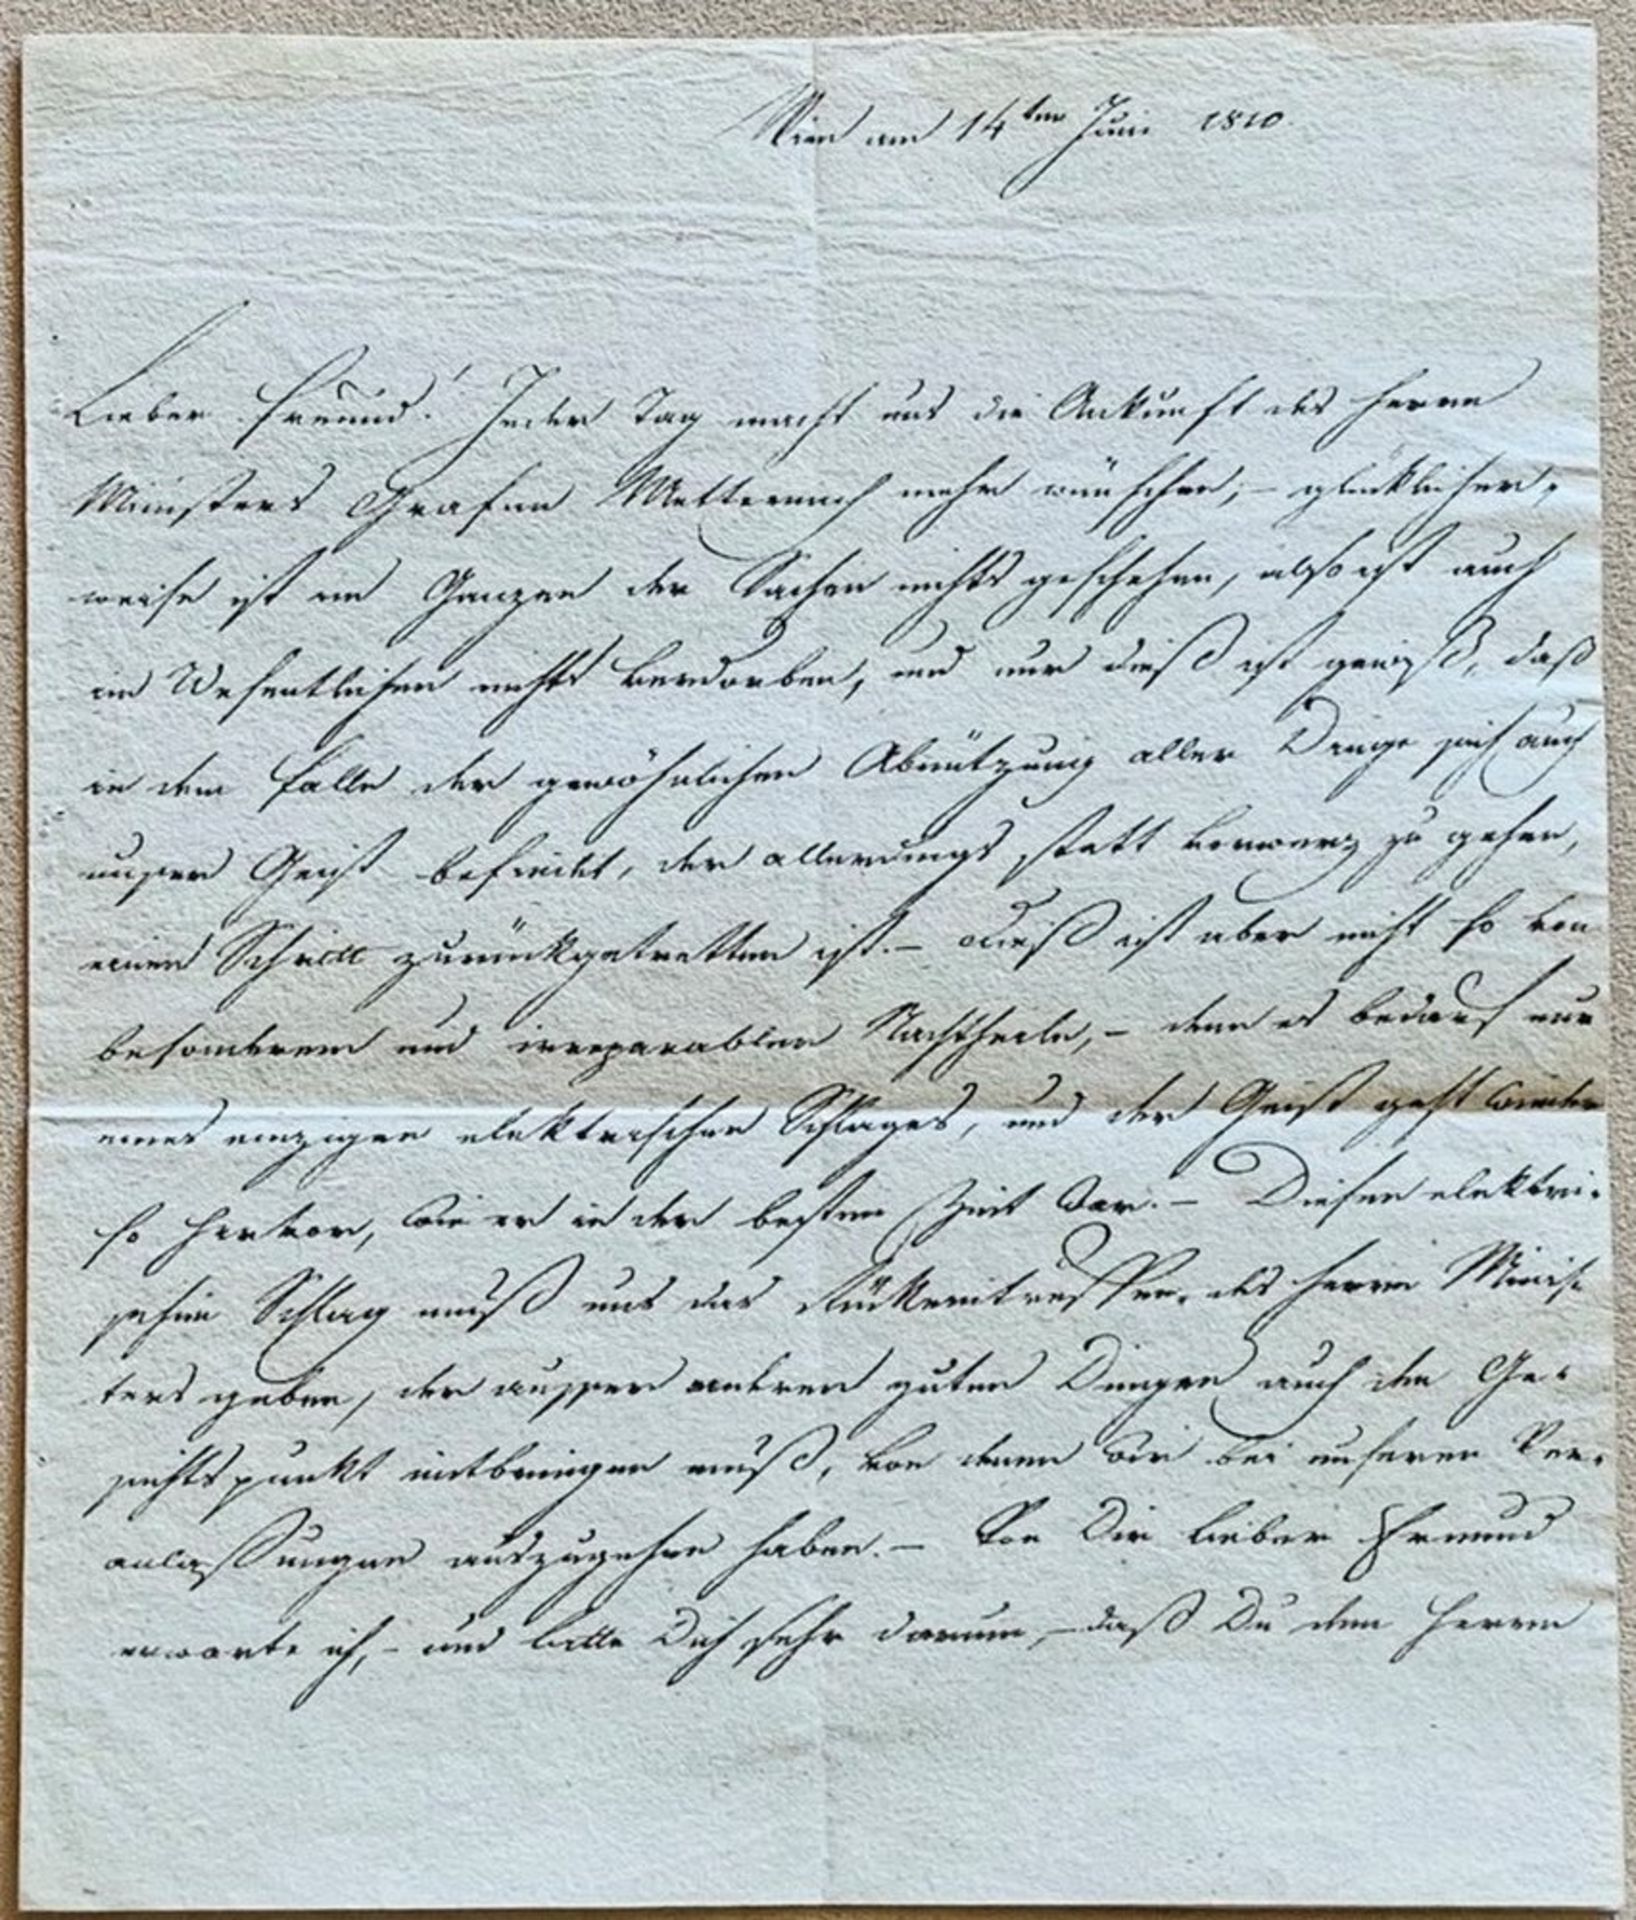 Wien am 14ten Juni 1810.
Lieber Freund! Jeder Tag macht uns die Ankunft des Herrn
Ministers Grafen Metternich mehr wünschen; – glücklicher-
weise ist im Ganzen der Sachen nichts geschehen, also ist auch
im Wesentlichen nichts verdorben, und nur dieß ist gewiß, daß
in dem Falle der gewöhnlichen Abnützung aller Dinge sich auch
unser Geist befindet, der allerdings statt vorwerz zu gehen,
einen Schritt zurückgetretten ist. – Dieß ist aber nicht so von
besonderem und irreparablen Nachtheile, – denn es bedarf nur
eines einzigen elektrischen Schlages, und der Geist geht wieder
so hervor, wie er in der besten Zeit war. – Diesen elektri-
schen Schlag muß uns das Rükeintreffen des Herrn Minis-
ters geben, der ausser anderen guten Dingen auch den Ge-
sichtspunkt mitbringen muß, von denen wir bei unseren Ver-
anlaßungen auszugehen haben. – Von Dir lieber Freund
erwarte ich, – und bitte Dich sehr darum, – daß Du dem Herrn